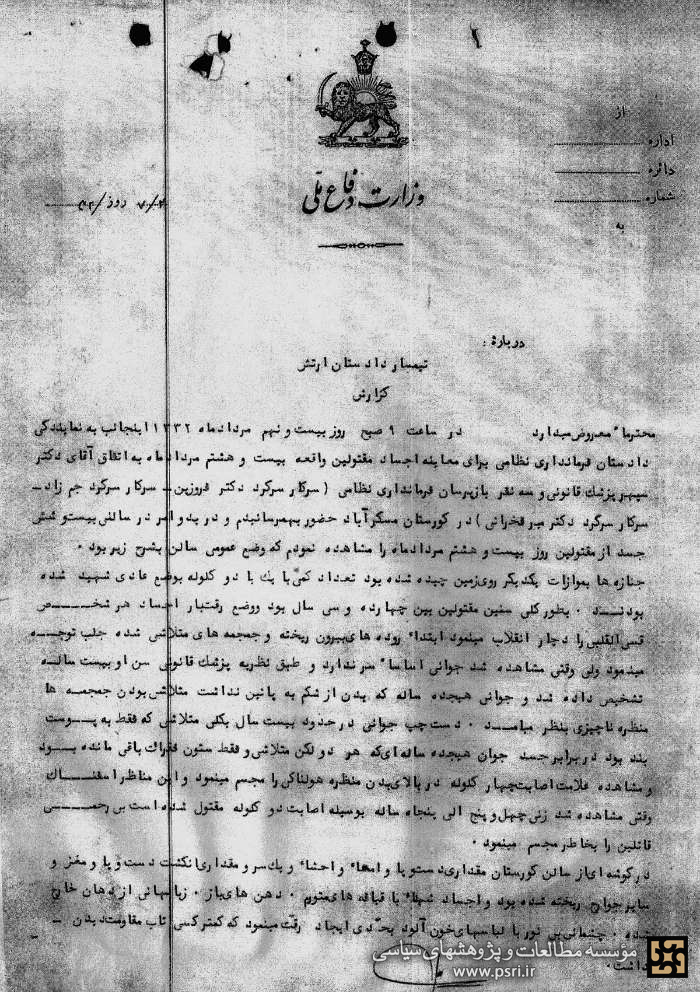 از
اداره
دائره
شماره
به
وزارت دفاع ملی
درباره :
تیمسار دادستان ارتش
گزارش
محترماً معروض میدارد در ساعت ۹ صبح روز بیست و نهم مردادماه ۱۳۳۲ اینجانب به نمایندگی
دادستان فرمانداری نظامی برای معاینه اجساد مقتولین واقعه بیست و هشتم مردادماه به اتفاق آقای دکتر
سپهر پزشك قانونی و سه نفر بازپرسان فرمانداری نظامی ( سرکار سرگرد دکتر فروزین ـ سرکار سرگرد جم زاد ـ
سرکار سرگرد دکتر میر فخرائی ) در گورستان مسگرآباد حضور بهمرسانیدم و در بدو امر در سالنی بیست و شش
جسد از مقتولین روز بیست و هشتم مردادماه را مشاهده نمودم که وضع عمومی سالن بشرح زیر بود .
جنازه ها بموازات یکدیگر روی زمین چیده شده بود تعداد کمی با یك یا دو گلوله بوضع عادی شهید شده
بودند . بطور کلی سنین مقتولین بین چهارده و سی سال بود و وضع رقت بار اجساد هر شخص
قسی القلبی را دچار انقلاب مینمود ابتداء روده های بیرون ریخته و جمجمه های متلاشی شده جلب توجه
مینمود ولی وقتی مشاهده شد جوانی اساساً سر ندارد و طبق نظریه پزشك قانونی سن او بیست ساله
تشخیص داده شد و جوانی هیجده ساله که بدن از شکم به پائین نداشت متلاشی بودن جمجمه ها
منظره ناچیزی بنظر میامد . دست چپ جوانی در حدود بیست سال بکلی متلاشی که فقط به پوست
بند بود در برابر جسد جوان هیجده ساله ای که هر دو لگن متلاشی و فقط ستون فقرات باقی مانده بود
و مشاهده علامت اصابت چهار گلوله در بالای بدن منظره هولناکی را مجسم مینمود و این مناظر اسفناك
وقتی مشاهده شد زنی چهل و پنج الی پنجاه ساله بوسیله اصابت دو گلوله مقتول شده است بی رحمی
قاتلین را بخاطر مجسم مینمود .
در گوشه ای از سالن گورستان مقداری دست و پا و امعاء و احشاء و یك سر و مقداری انگشت دست و پا و مغز و
سایر جوارح ریخته شده بود و اجساد شهداء با قیافه های متورم . دهن های باز . زبانهائی از دهان خارج
شده . چشمانی بی نور با لباسهای خون آلود بحدی ایجاد رقت مینمود که کمتر کسی تاب مقاومت دیدن ـ
داشت .
مؤسسه مطالعات و پژوهشهای سیاسی
www.psri.ir